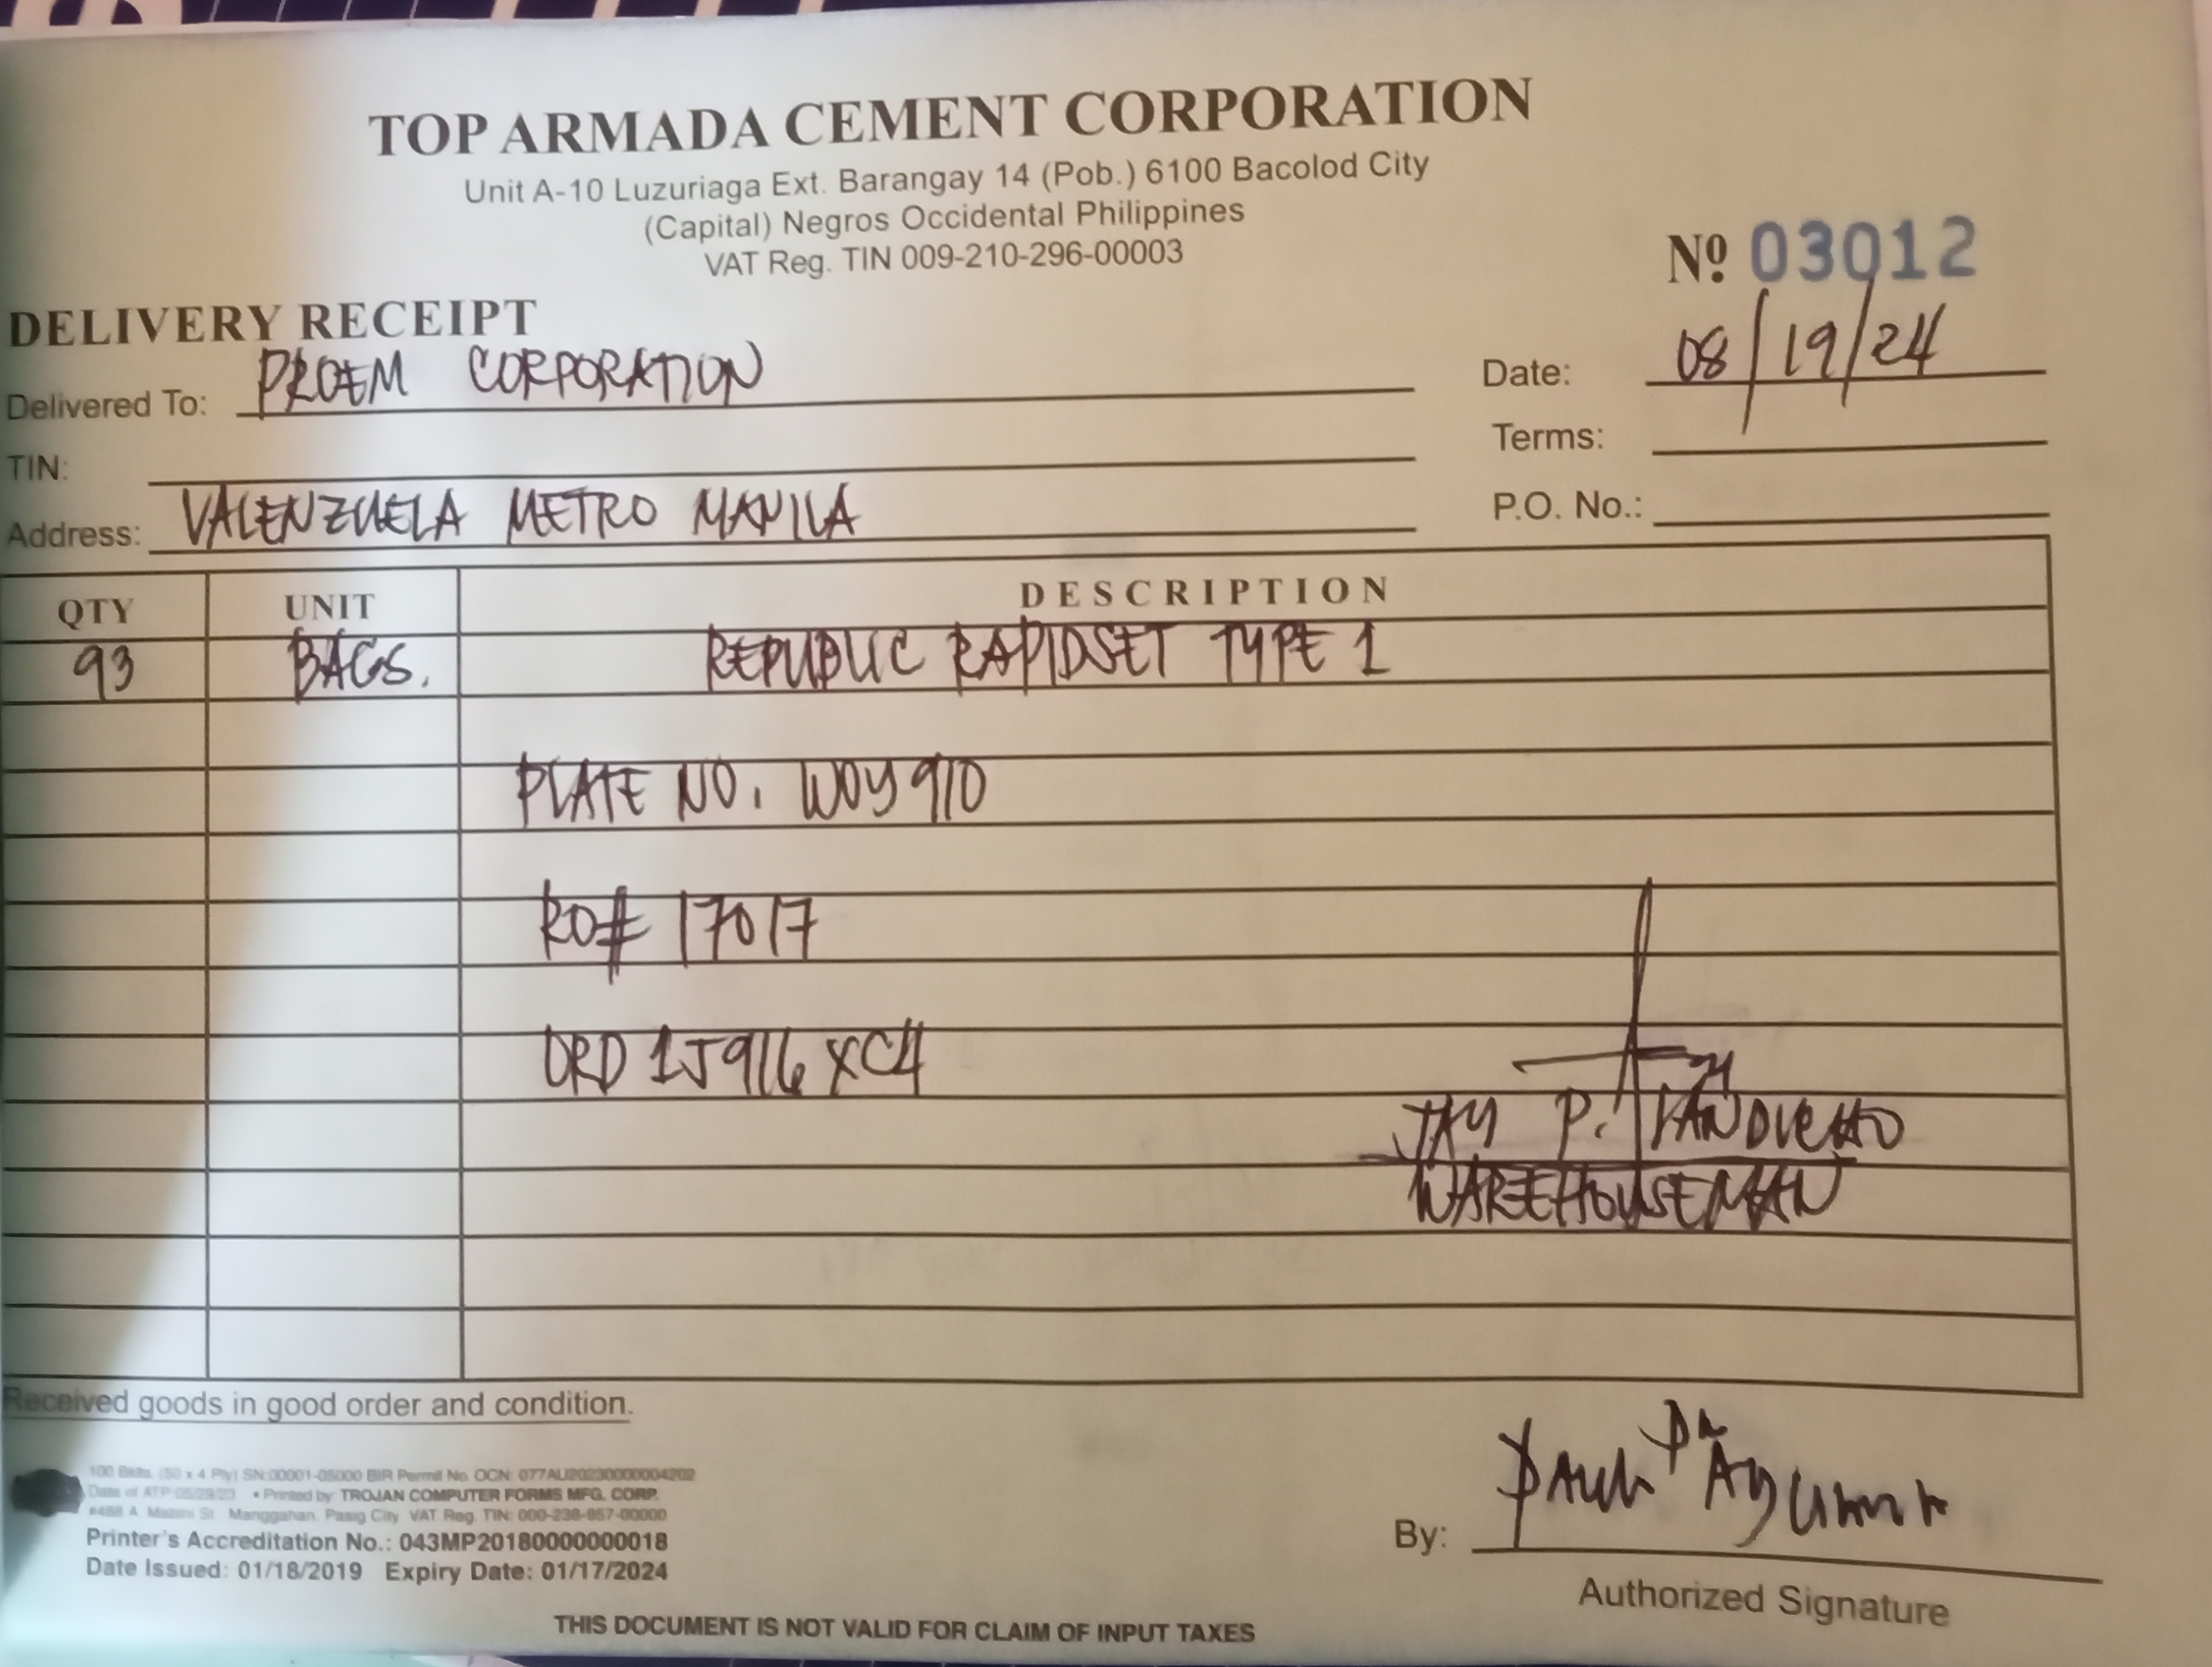 TOP ARMADA CEMENT CORPORATION
Unit A-10 Luzuriaga Ext. Barangay 14 (Pob.) 6100 Bacolod City
(Capital) Negros Occidental Philippines
VAT Reg. TIN 009-210-296-00003
Nº 03012
DELIVERY RECEIPT
Delivered To: PROEM CORPORATION
Date: 08/19/24
TIN:
Terms:
Address: VALENZUELA METRO MANILA
P.O. No.:
QTY UNIT DESCRIPTION
93 BAGS. REPUBLIC RAPIDSET TYPE 1
PLATE NO. WOY 910
RO# 17017
ORD 1J916XC4
JAY P.
WAREHOUSEMAN
Received goods in good order and condition.
100 Bklts. (50 x 4 Ply) SN:00001-05000 BIR Permit No. OCN: 077AU20230000004202
Date of ATP 05/29/23 • Printed by: TROJAN COMPUTER FORMS MFG. CORP.
#488 A. Mabini St. Manggahan, Pasig City VAT Reg. TIN: 000-238-957-00000
Printer's Accreditation No.: 043MP20180000000018
Date Issued: 01/18/2019 Expiry Date: 01/17/2024
By:
Authorized Signature
THIS DOCUMENT IS NOT VALID FOR CLAIM OF INPUT TAXES